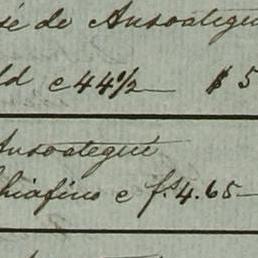 sé de Ansoategui
ld c 44½ $ 5
Ansoategui
hiafino c f.s 4.65